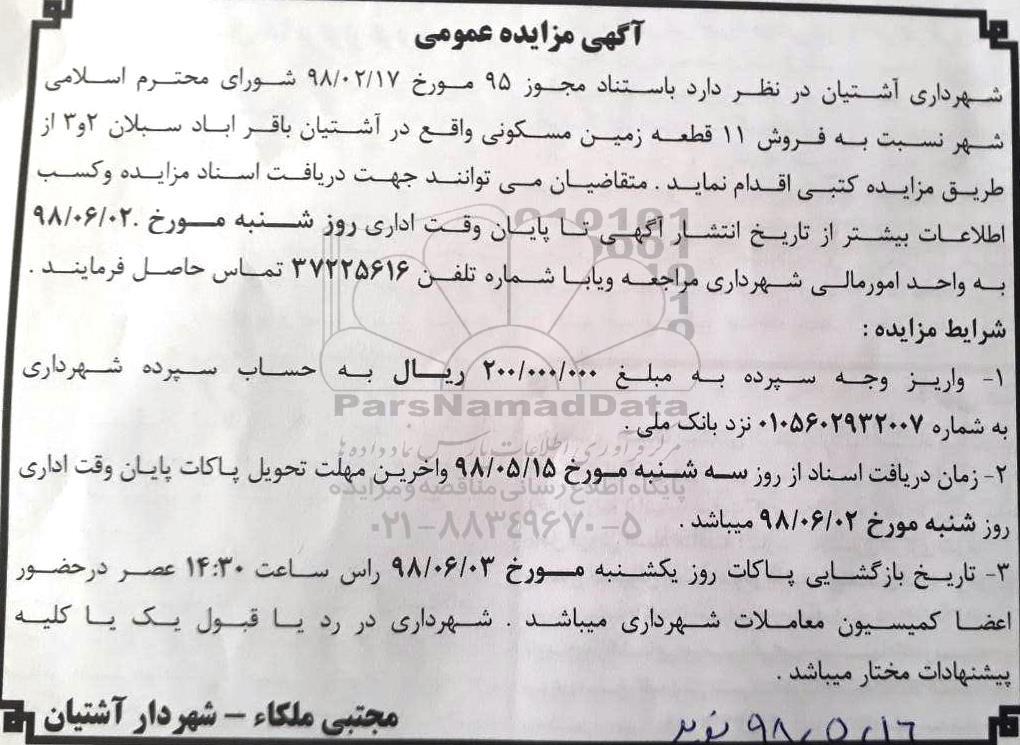 آگهی مزایده عمومی
شهرداری آشتیان در نظر دارد باستناد مجوز ۹۵ مورخ ۹۸/۰۲/۱۷ شورای محترم اسلامی
شهر نسبت به فروش ۱۱ قطعه زمین مسکونی واقع در آشتیان باقر اباد سبلان ۲و۳ از
طریق مزایده کتبی اقدام نماید . متقاضیان می توانند جهت دریافت اسناد مزایده وکسب
اطلاعات بیشتر از تاریخ انتشار آگهی تا پایان وقت اداری روز شنبه مورخ ۹۸/۰۶/۰۲.
به واحد امورمالی شهرداری مراجعه ویابا شماره تلفن ۳۷۲۲۵۶۱۶ تماس حاصل فرمایند .
شرایط مزایده :
۱- واریز وجه سپرده به مبلغ ۲۰۰/۰۰۰/۰۰۰ ریال به حساب سپرده شهرداری
ParsNamadData
به شماره ۰۱۰۵۶۰۲۹۳۲۰۰۷ نزد بانک ملی .
مرکز فرآوری اطلاعات پارس نماد داده ها
۲- زمان دریافت اسناد از روز سه شنبه مورخ ۹۸/۰۵/۱۵ واخرین مهلت تحویل پاکات پایان وقت اداری
پایگاه اطلاع رسانی مناقصه و مزایده
روز شنبه مورخ ۹۸/۰۶/۰۲ میباشد .
۰۲۱-۸۸۳۴۹۶۷۰-۵
۳- تاریخ بازگشایی پاکات روز یکشنبه مورخ ۹۸/۰۶/۰۳ راس ساعت ۱۴:۳۰ عصر درحضور
اعضا کمیسیون معاملات شهرداری میباشد . شهرداری در رد یا قبول یک یا کلیه
پیشنهادات مختار میباشد .
مجتبی ملکاء - شهردار آشتیان
۹۸،۵،۱۶